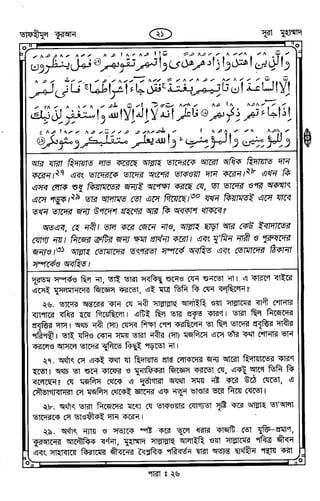 তাফহীমুল কুরআন
২১
সূরা মুহাম্মাদ
وَالَّذِينَ اهْتَدَوْا زَادَهُمْ هُدًى وَآتَاهُمْ تَقْوَاهُمْ ۝ فَهَلْ يَنْظُرُونَ
إِلَّا السَّاعَةَ أَنْ تَأْتِيَهُمْ بَغْتَةً ۚ فَقَدْ جَاءَ أَشْرَاطُهَا ۚ فَأَنَّى لَهُمْ
إِذَا جَاءَتْهُمْ ذِكْرَاهُمْ ۝ فَاعْلَمْ أَنَّهُ لَا إِلَٰهَ إِلَّا اللَّهُ وَاسْتَغْفِرْ لِذَنْبِكَ
وَلِلْمُؤْمِنِينَ وَالْمُؤْمِنَاتِ ۗ وَاللَّهُ يَعْلَمُ مُتَقَلَّبَكُمْ وَمَثْوَاكُمْ ۝
আর যারা হিদায়াত লাভ করেছে আল্লাহ তাদেরকে আরো অধিক হিদায়াত দান
করেন।২৭ এবং তাদেরকে তাদের অংশের তাকওয়া দান করেন।২৮ এখন কি
এসব লোক শুধু কিয়ামতের জন্যই অপেক্ষা করছে যে, তা তাদের ওপর অকস্মাৎ
এসে পড়ুক।২৯ তার আলামত তো এসে গিয়েছে।৩০ যখন কিয়ামতই এসে যাবে
তখন তাদের জন্য উপদেশ গ্রহণের আর কি অবকাশ থাকবে?
অতএব, হে নবী। ভাল করে জেনে নাও, আল্লাহ ছাড়া আর কেউ ইবাদাতের
যোগ্য নয়। নিজের ত্রুটির জন্য ক্ষমা প্রার্থনা করো। এবং মু'মিন নারী ও পুরুষদের
জন্যও।৩১ আল্লাহ তোমাদের তৎপরতা সম্পর্কে অবহিত এবং তোমাদের ঠিকানা
সম্পর্কেও অবহিত।
দূরতম সম্পর্কও ছিল না, তাই তারা সবকিছু শুনেও যেন শুনতো না। এ কারণে বাইরে
এসেই মুসলমানদের জিজ্ঞেস করতো, এই মাত্র তিনি কি যেন বলছিলেন?
২৬. তাদের অন্তরের কান যে নবী সাল্লাল্লাহু আলাইহি ওয়া সাল্লামের বাণী শোনার
ব্যাপারে বধির হয়ে গিয়েছিলো। এটিই ছিল তার প্রকৃত কারণ। তারা ছিল নিজেদের
প্রবৃত্তির দাস। অথচ নবী (সা) যেসব শিক্ষা পেশ করছিলেন তা ছিল তাদের প্রবৃত্তির দাবীর
পরিপন্থী। তাই যদিও কোন সময় তারা নবীর (সা) মজলিসে এসে তাঁর কথা শোনার ভান
করলেও আসলে তাদের ঝুলিতে কিছুই পড়তো না।
২৭. অর্থাৎ যে একই কথা যা হিদায়াত প্রাপ্ত লোকদের জন্য আরো হিদায়াতের কারণ
হতো। অথচ তা শুনে কাফের ও মুনাফিকরা জিজ্ঞেস করতো যে, একটু আগে তিনি কি
বলেছেন? যে মজলিস থেকে এ দুর্ভাগারা অযথা সময় নষ্ট করে উঠে যেতো, এ
সৌভাগ্যবানরা সে মজলিস থেকেই জ্ঞানের এক নতুন ভাণ্ডার ভরে নিয়ে যেতো।
২৮. অর্থাৎ তারা নিজেদের মধ্যে যে তাকওয়ার যোগ্যতা সৃষ্টি করে আল্লাহ তা'আলা
তাদেরকে সে তাওফীকই দান করেন।
২৯. অর্থাৎ ন্যায় ও সত্যকে স্পষ্ট করে তুলে ধরার কাজটি তো যুক্তি-প্রমাণ,
কুরআনের অলৌকিক বর্ণনা, মুহাম্মাদ সাল্লাল্লাহু আলাইহি ওয়া সাল্লামের পবিত্র জীবন
এবং সাহাবায়ে কিরামের জীবনের বৈপ্লবিক পরিবর্তন দ্বারা অত্যন্ত দ্ব্যর্থহীন পন্থায় করা
পারা : ২৬